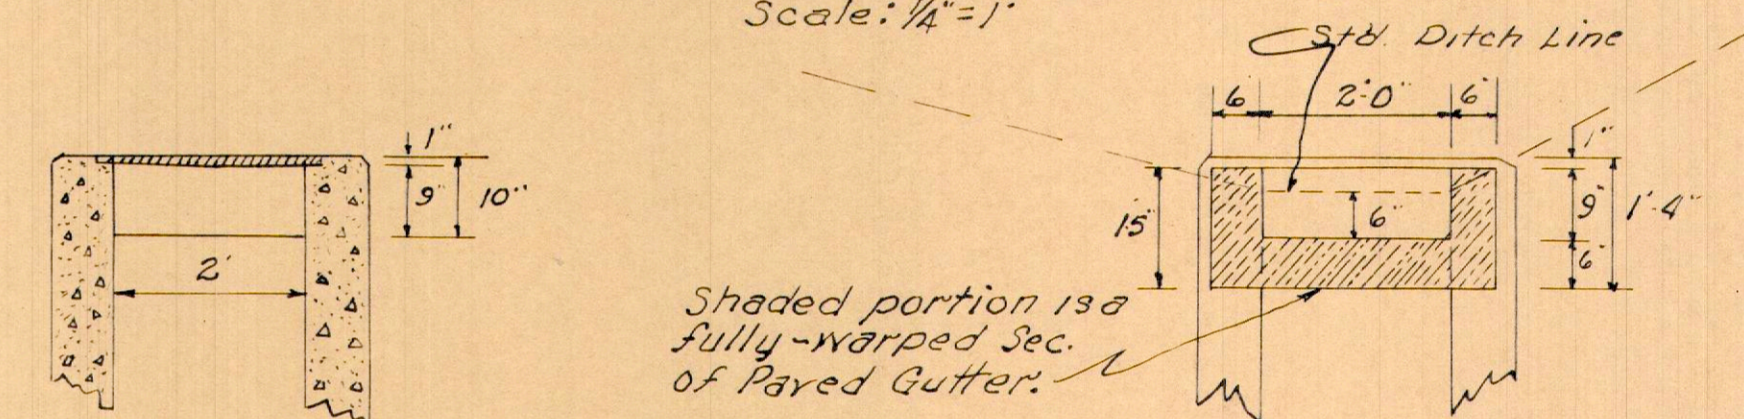 Scale: 1/4" = 1'
Std. Ditch Line
6" 2'-0" 6"
1"
9"
10"
2'
1"
9"
1'-4"
6"
15"
6"
Shaded portion is a
fully-warped Sec.
of Paved Gutter.